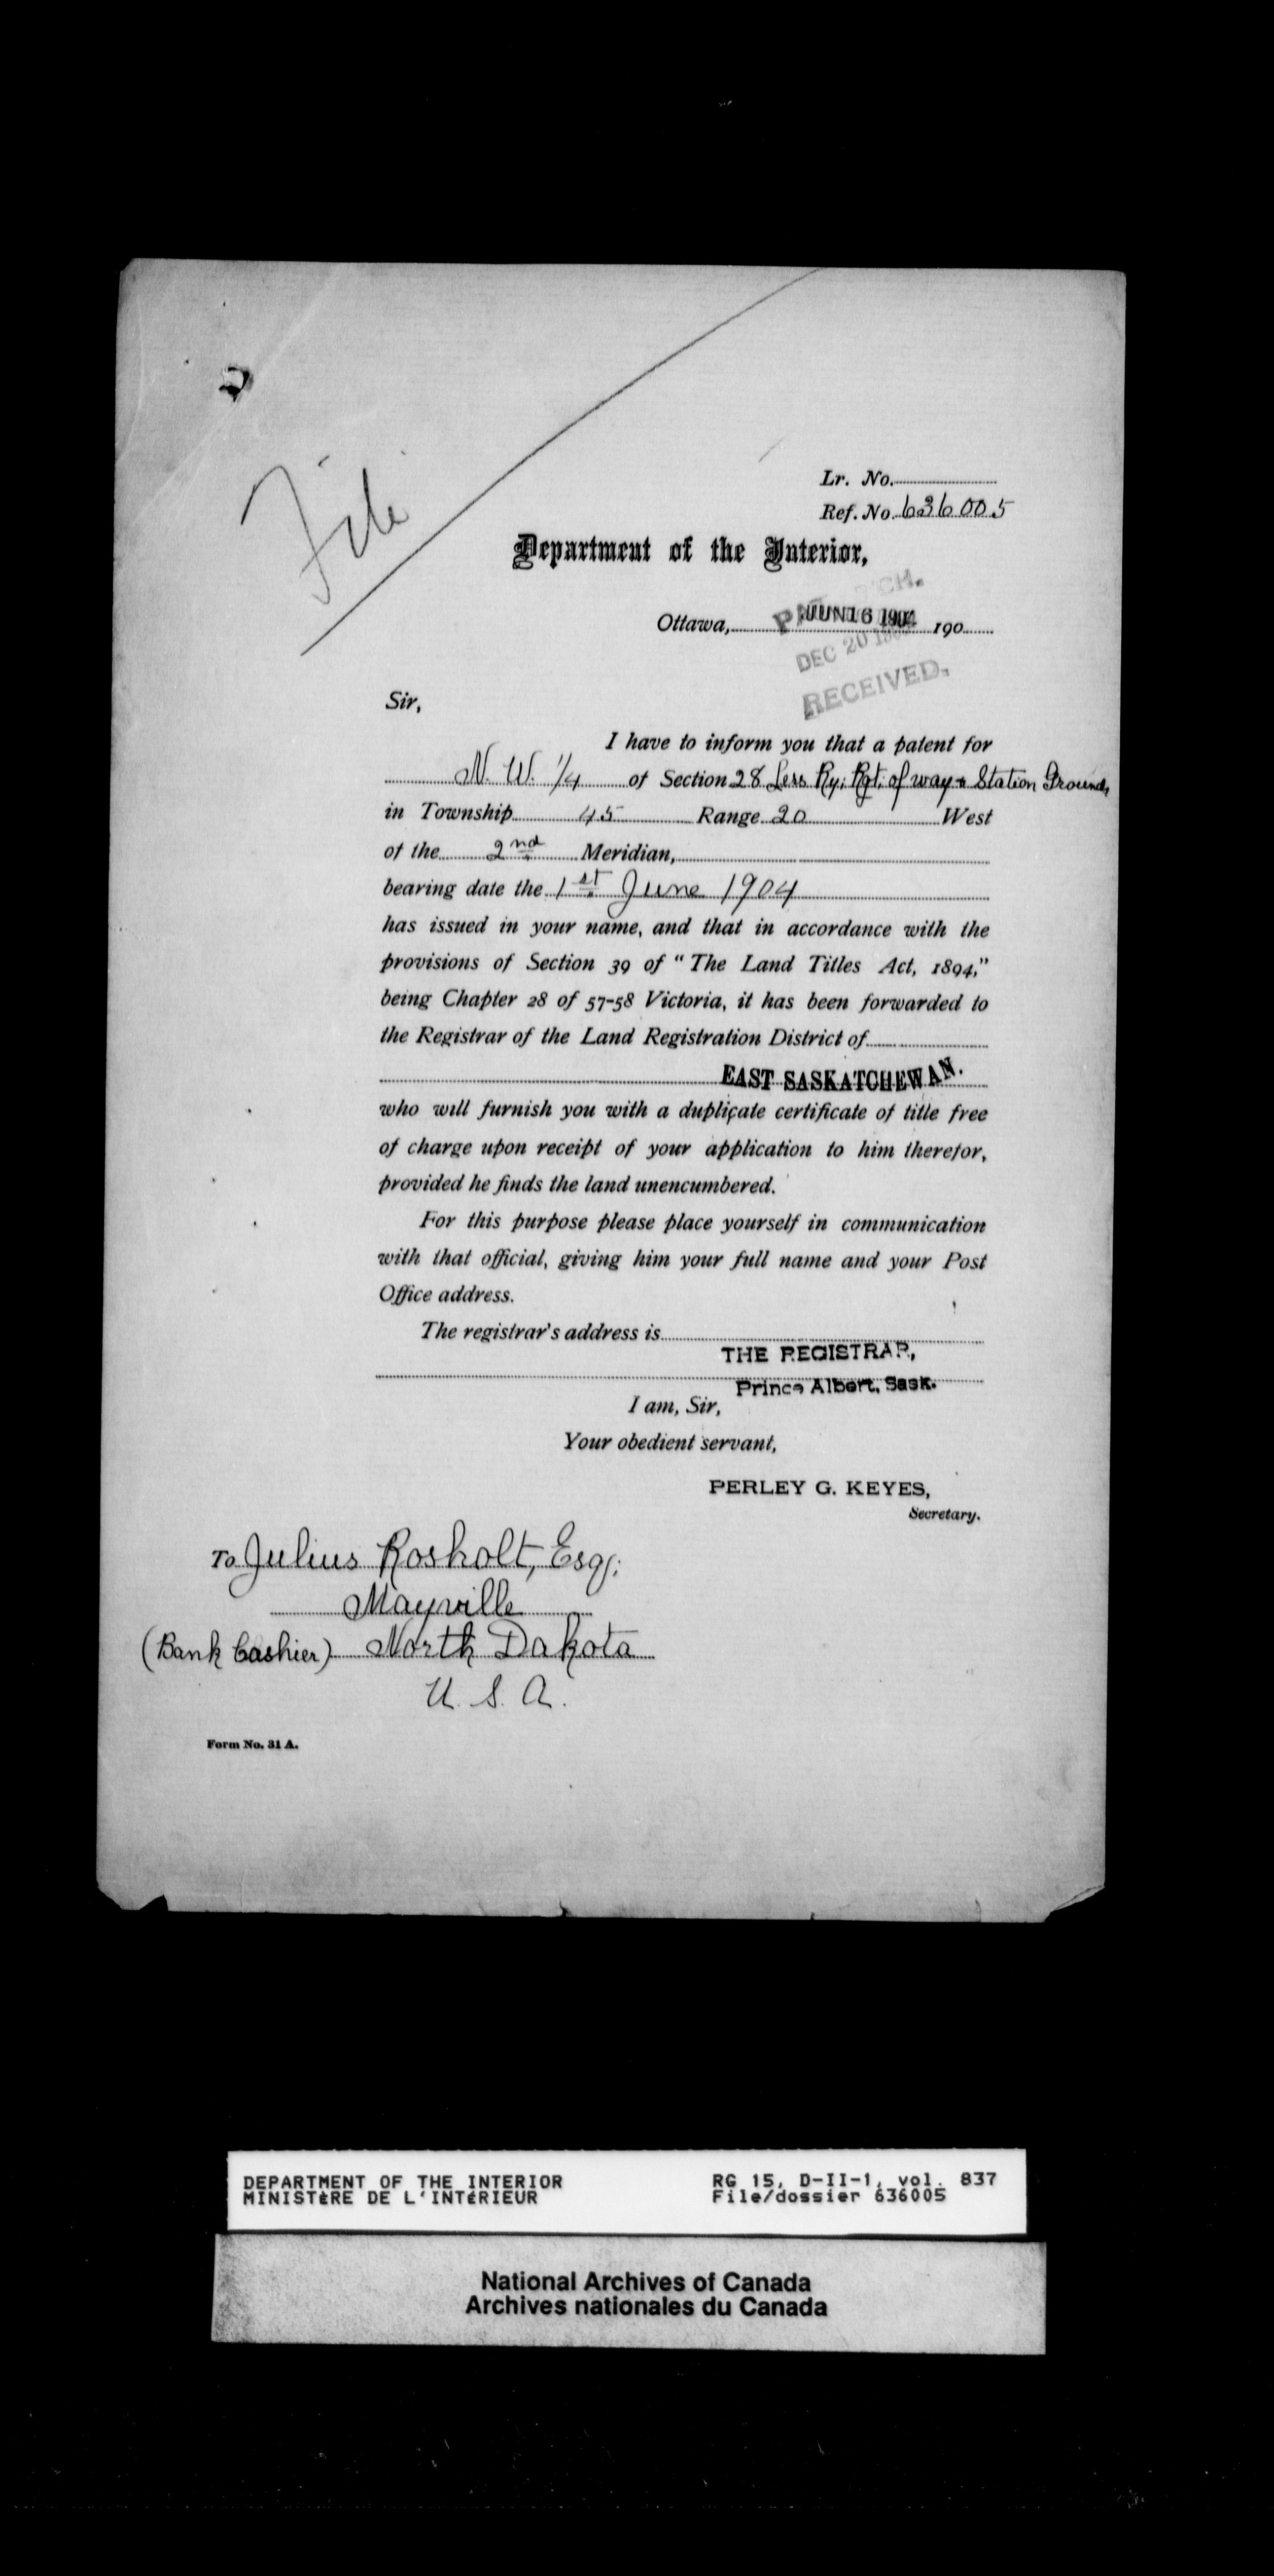 File
Lr. No.
Ref. No. 636005
Department of the Interior,
Ottawa, JUN 16 1904 190
DEC 20
RECEIVED.
Sir,
I have to inform you that a patent for
N. W. 1/4 of Section 28 Less Ry; Rgt; of way & Station Grounds
in Township 45 Range 20 West
of the 2nd Meridian,
bearing date the 1st June 1904
has issued in your name, and that in accordance with the
provisions of Section 39 of "The Land Titles Act, 1894,"
being Chapter 28 of 57-58 Victoria, it has been forwarded to
the Registrar of the Land Registration District of
EAST SASKATCHEWAN.
who will furnish you with a duplicate certificate of title free
of charge upon receipt of your application to him therefor,
provided he finds the land unencumbered.
For this purpose please place yourself in communication
with that official, giving him your full name and your Post
Office address.
The registrar's address is
THE REGISTRAR,
Prince Albert, Sask.
I am, Sir,
Your obedient servant,
PERLEY G. KEYES,
Secretary.
To Julius Rosholt, Esq;
Mayville
(Bank Cashier) North Dakota
U. S. A.
Form No. 31 A.
DEPARTMENT OF THE INTERIOR RG 15, D-II-1, vol. 837
MINISTÈRE DE L'INTÉRIEUR File/dossier 636005
National Archives of Canada
Archives nationales du Canada